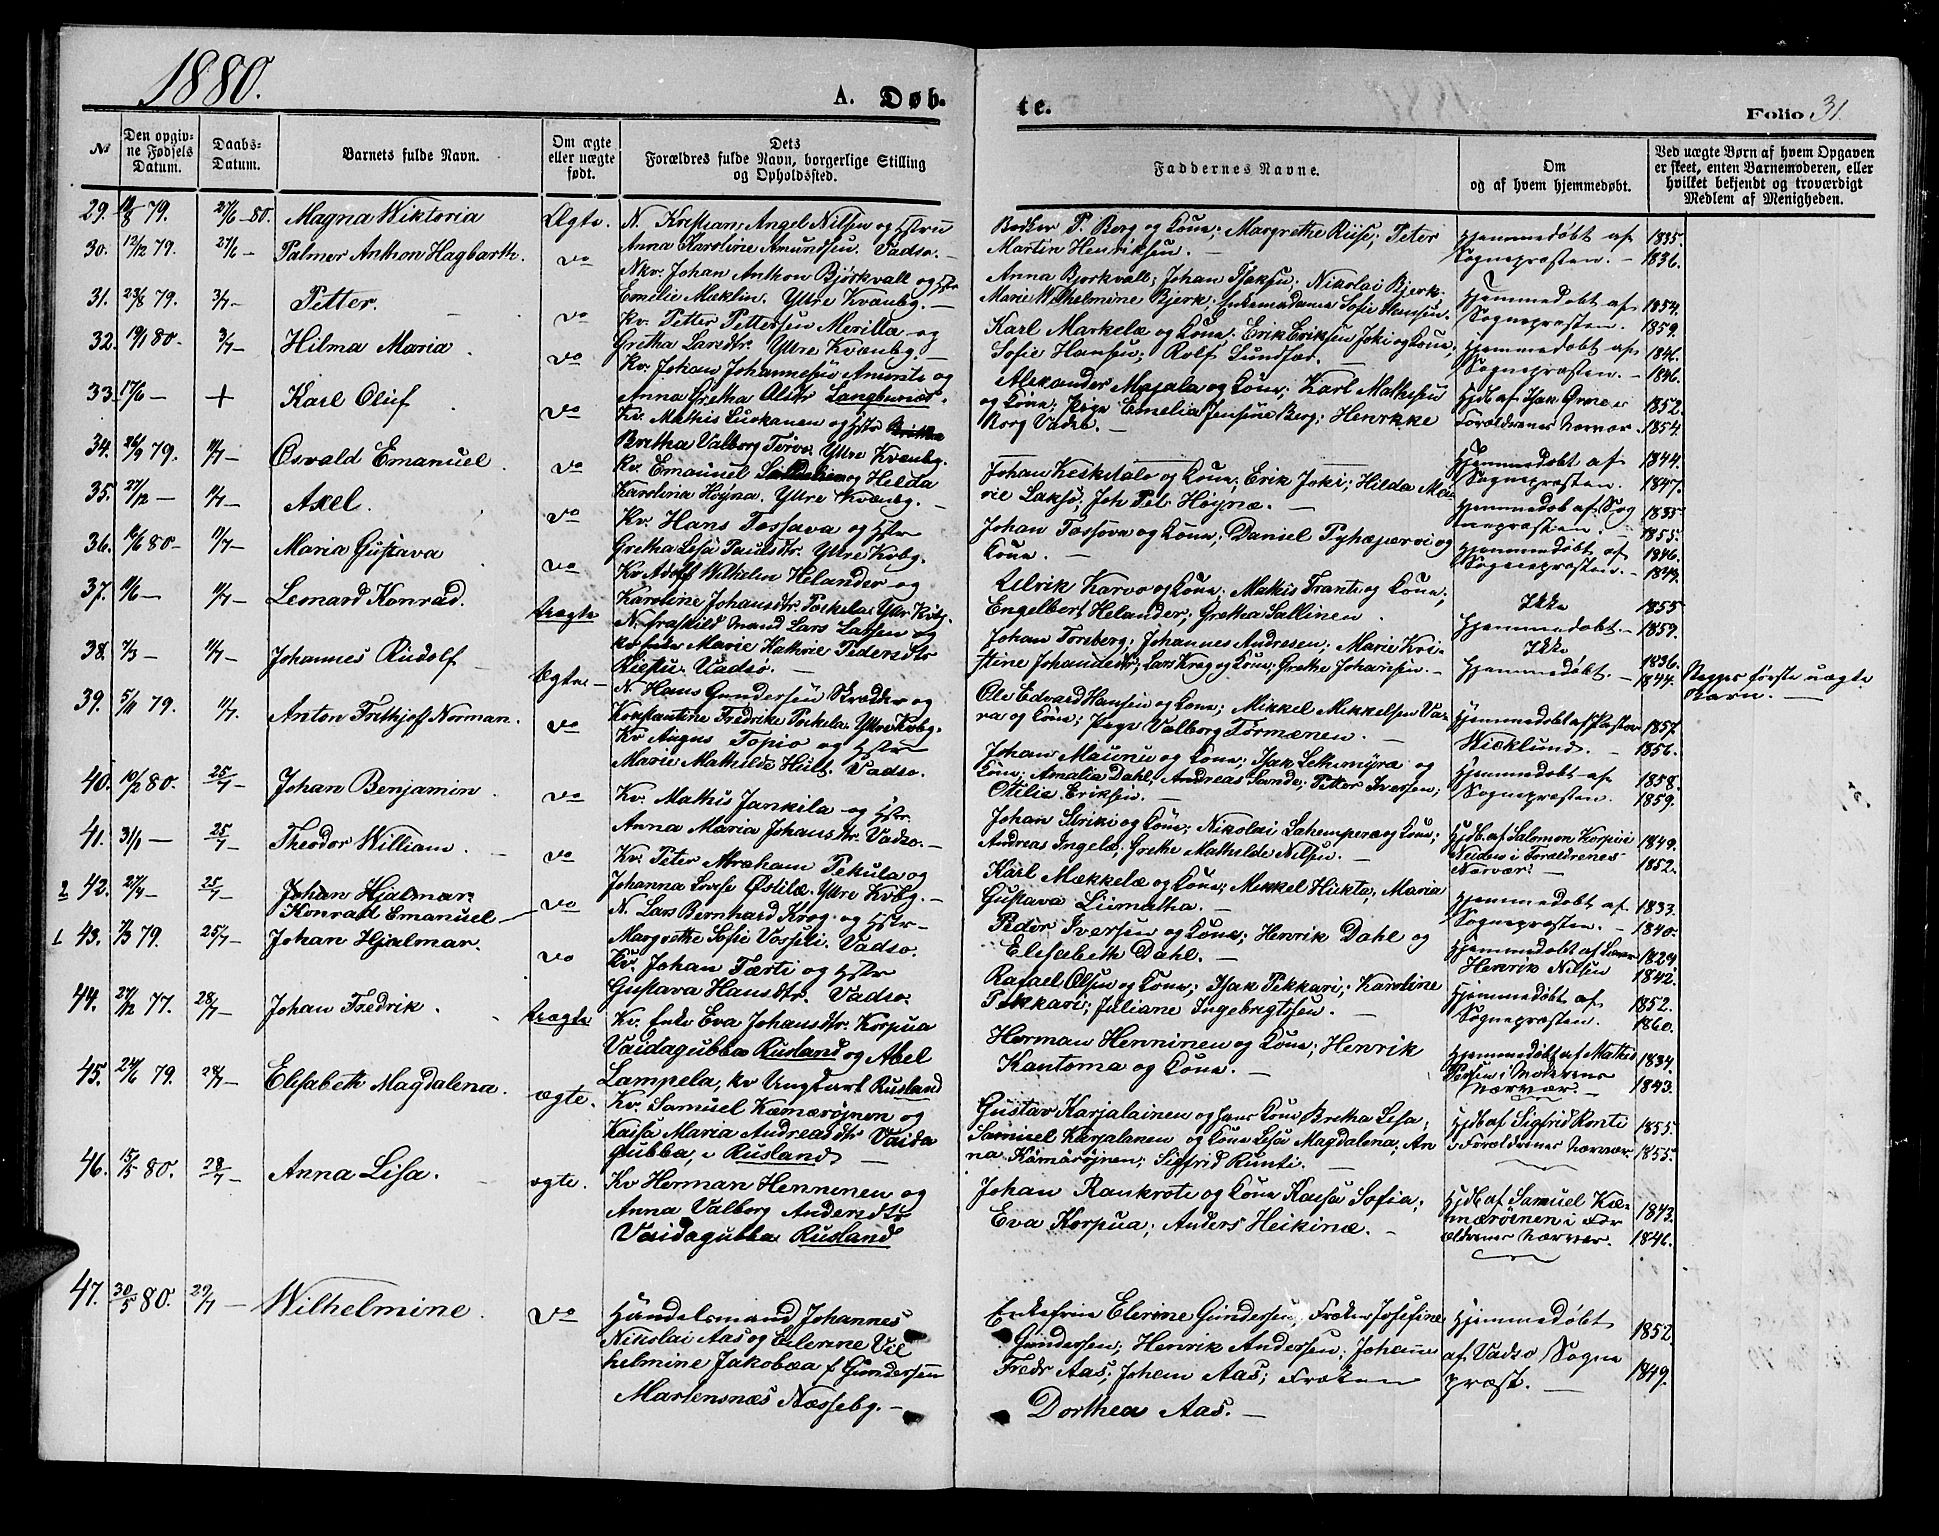 1880.
A. Døb-
te.
Folio 31.
No
Den opgiv-
ne Fødsels
Datum.
Daabs-
Datum.
Barnets fulde Navn.
Om ægte
eller uægte
født.
Dets
Forældres fulde Navn, borgerlige Stilling
og Opholdssted.
Faddernes Navne.
Om
og af hvem hjemmedøbt.
Ved uægte Børn af hvem Opgaven
er skeet, enten Barnemoderen, eller
hvilket bekjendt og troværdigt
Medlem af Menigheden.
29. 79. 27/6 - 80. Magna Wiktoria Ægte.
N. Kristian Angel Nilsen og Hstru
Anna Karoline Amundsen. Vadsø. -
Bødker P. Borg og Kone; Margrethe Riise; Peter
Martin Henriksen. -
Hjemmedøbt af
Sognepræsten. -
1835.
1836.
30. 12/12 79. 27/6 - Palmer Anthon Hagbarth. do
Nkv. Johan Anthon Björkvall og Hstr
Emilie Mæklin. Yttre Kvænbg. -
Anna Bjorkvall; Johan Isaksen; Nikolai Bjerk;
Marie Wilhelmine Bjerk; Enkemadame Sofie Hansen.
Hjemmedøbt af
Sognepræsten.
1854.
1859.
31. 23/8 79. 3/7 - Petter. do
Kv. Petter Pettersen Merilla og
Gretha Larsdtr. Yttre Kvænbg. -
Karl Markelæ og Kone; Erik Eriksen Joki og Kone;
Sofie Hansen; Rolf Sundfær. -
Hjemmedøbt af
Sognepræsten. -
1846.
1846.
32. 19/1 80 - 3/7 - Hilma Maria. do
Kv. Johan Johannesen og
Anna Gretha Olsdtr Langbunes.
Alexander Majala og Kone; Karl Mathisen
og Kone; Pige Emelia Jensine Berg; Henrikke
Borg Vadsø. -
Hjdb af Isak
Forældrenes Nærvær.
1852.
1854.
33. 17/6 - + Karl Oluf. do
Kv. Mathis Luokanen og Hstr
Bretha Valborg Törvo. Yttre Kvænbg.
Hjemmedøbt af
Sognepræsten.
1844.
1847.
34. 26/9 79. 11/7 - Osvald Emanuel. do
Kv. Emanuel og Helda
Karolina Høyna. Yttre Kvænbg. -
Johan Keskitalo og Kone; Erik Joki; Hilda Ma-
rie Laksø; Joh. Pet. Høynæ. -
Hjemmedøb af Sog
nepræsten. -
1835
1855.
35. 27/12 - 11/7 - Axel. do
Kv. Hans Tossava og Hstr
Gretha Lisa Paulsdtr. Yttre Kvbg.
Johan Tossova og Kone; Daniel Pyhæjærvi og
Kone. -
Hjemmedøbt af
Sognepræsten. -
1846.
1849.
36. 80 - 11/7 - Maria Gustava do
Kv Adolf Wilhelm Helander og
Karoline Johansdtr. Poikela. Yttr Kvbg.
Ulrik Karvo og Kone; Mathis Frante og Kone;
Engelbert Helander; Gretha Sallinen.
Ikke
Hjemmedøbt. -
1855
1859.
37. 11/7 - Leonard Konrad. Uægte
N. fraskild Mand Lars Larsen og
Kv Enke Marie Kathrie Pedersdtr
Vadsø.
Johan Torsberg; Johannes Andresen; Marie Kri-
stine Johansdtr; Lars Krog og Kone; Grethe Johansen. -
Ikke
Hjemmedøbt. -
1836.
1844.
Begges første uægte
Barn. -
38. 7/3 - 11/7 - Johannes Rudolf - Ægte -
N. Hans Gundersen Skredder og
Konstantine Fredrike Poikela. Yttre Kvbg.
Ole Edvard Hansen og Kone; Mikkel Mikkelsen Va-
ra og Kone; Pige Valborg Törmænen. -
Hjemmedøbt af Pastor
Wicklund. -
1857.
1856.
39. 5/11 79. 11/7. Anton Frithjof Norman. do
Kv August Topio og Hstr
Marie Mathilde Hult. Vadsø.
Johan Maunu og Kone; Isak Lehimyra og
Kone; Amalia Dahl, Andreas Sande; Petter Iversen;
Otilie Eriksen. -
Hjemmedøbt af
Sognepræsten.
1858.
1859.
40. 10/2 80. 25/7 - Johan Benjamin. do
Kv. Mathis Jankila og Hstr.
Anna Maria Johansdtr. Vadsø. -
Johan Seriki og Kone; Nikolai Lahenperæ og Kone;
Andreas Ingelæ; Grethe Mathilde Nilsen. -
Hjdb. af Salomon Korpii
Neiden i Forældrenes
Nærvær. -
1849.
1852.
41. 31/1 - 25/7 - Theodor William. - do
Kv. Peter Abraham Pekula og
Johanna Lovise Östilæ. Yttre Kvbg. -
Karl Mækkelæ og Kone; Mikkel Hiekta; Maria
Gustava Liimatha. -
Hjemmedøbt af
Sognepræsten. -
1833.
1840.
2 42. 27/4 - 25/7 - Johan Hjalmar
Konrad Emanuel - do
N. Lars Bernhard Krog og Hstr -
Margrethe Sofie Vorseli. Vadsø.
Peder Iversen og Kone; Henrik Dahl og
Elisabeth Dahl. -
Hjemmedøbt af Lærer
Henrik Nilsen
1829.
1842.
1 43. 7/3 79. 25/7 - Johan Hjalmar. do
Kv. Johan Tærti og Hstr
Gustava Hansdtr. Vadsø.
Rafael Olsen og Kone; Isak Pekkari; Karoline
Pekkari; Juliane Ingebrigtsen. -
Hjemmedøbt af
Sognepræsten.
1852.
1860.
44. 27/12 77. 28/7 - Johan Fredrik. Uægte
Kv. Enke Eva Johansdtr. Korpua
Vaidagubba Rusland og Abel
Lampela, kv Ungkarl Rusland
Herman Henninen og Kone; Henrik
Kantoma og Kone. -
Hjemmedøbt af Mathis
Persen i Moderens
Nærvær. -
1834.
1843.
45. 24/6 79. 28/7 - Elisabeth Magdalena. ægte.
Kv. Samuel Kæmærøjnen og
Kaisa Maria Andreasdtr Vaida
gubba, i Rusland -
Gustav Karjalainen og hans Kone Bretha Lisa;
Samuel Karjalanen og Kone Lisa Magdalena; An
na Kämäröjnen; Sigfrid Runti. -
Hjdb af Sigfrid Ronti
i Forældrenes Nærvær.
1855.
1855.
46. 15/5 80. 28/7 - Anna Lisa. ægte.
Kv Herman Henninen og
Anna Valborg Andersdtr
Vaidagubba Rusland
Johan Rankrote og Kone Kaisa Sofia;
Eva Korpua; Anders Heikinæ. -
Hjdb af Samuel Kæ-
mærøinen i For
ældrenes Nærvær.
1843.
1846.
47. 30/5 80. 29/7 - Wilhelmine. do
Handelsmand Johannes
Nikolai Aas og Elerine Vil
helmine Jakobæa f. Gundersen
Martensnæs Næsseby. -
Enkefrue Elerine Gundersen; Frøken Josefine
Gundersen; Henrik Andersen; Johan
Fredr Aas; Johan Aas; Frøken
Dorthea Aas. -
Hjemmedøbt
af Vadsø Sogne
præst. -
1852.
1849.